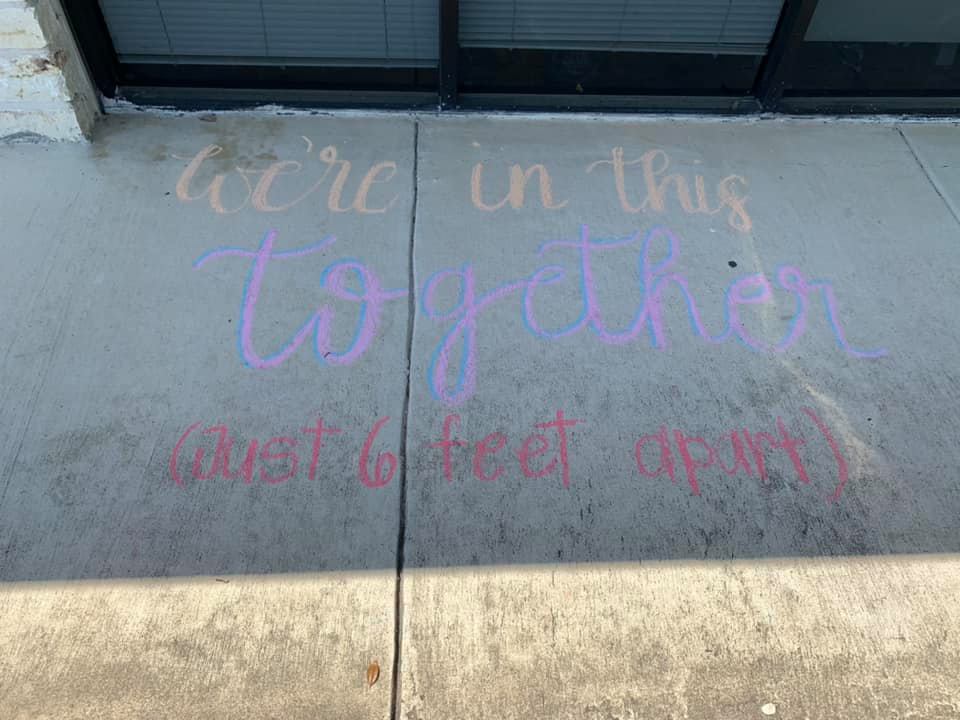 we're in this
together
(Just 6 feet apart)